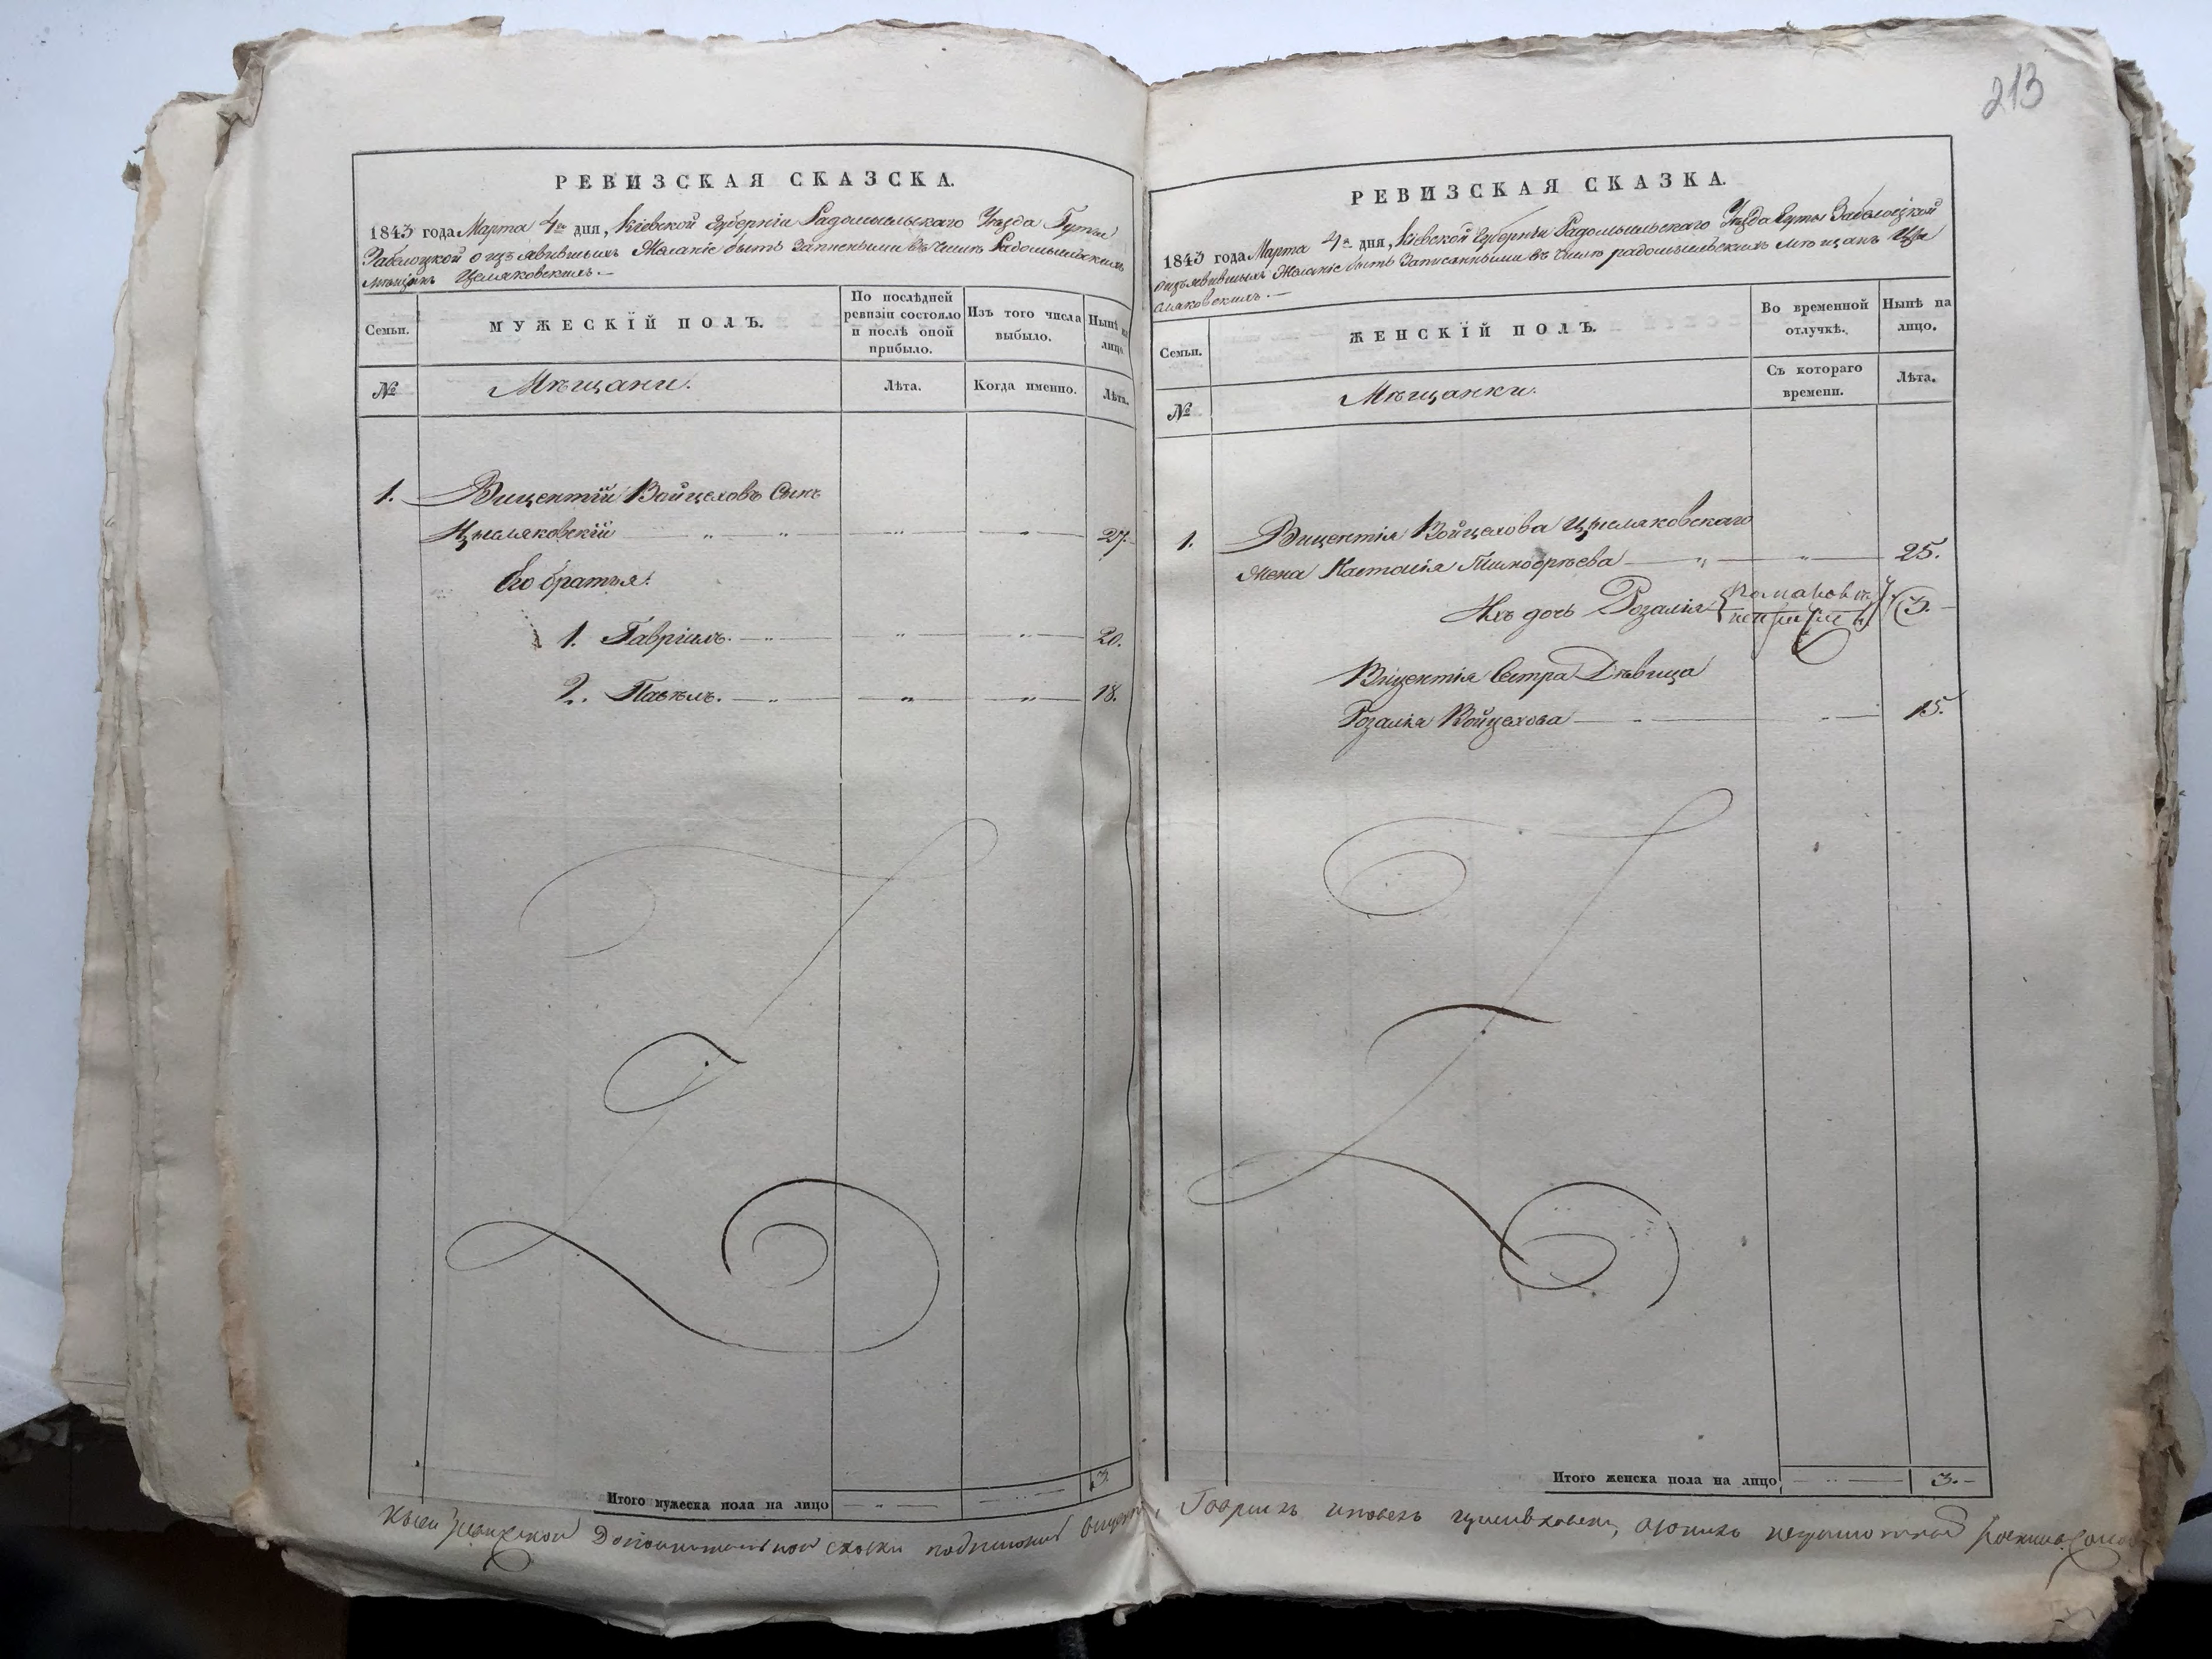 213
РЕВИЗСКАЯ СКАЗСКА.
1843 года Марта 4го дня, Кіевской Губерніи Радомыльскаго Уѣзда Гуты
Забелоцкой о изъявившихъ Желаніе быть Записеными въ число Радомысльскихъ
мѣщанъ Цемяковскихъ.—
Семьи.
МУЖЕСКІЙ ПОЛЪ.
По послѣдней ревизіи состояло и послѣ оной прибыло.
Изъ того числа выбыло.
Нынѣ на лицо.
№
Мѣщани.
Лѣта.
Когда именно.
Лѣта.
1. Вицентій Войцеховъ Сынъ
Цымяковскій 27.
Его братья:
1. Гавріилъ. 20.
2. Павелъ. 18.
Итого мужеска пола на лицо 3.
РЕВИЗСКАЯ СКАЗКА.
1843 года Марта 4го дня, Кіевской Губерніи Радомысльскаго Уѣзда Гуты Забелоцкой
изъявившыхъ Желаніе быть Записанными въ число радомысльскихъ мѣщанъ Цы
мяковскихъ.—
Семьи.
ЖЕНСКІЙ ПОЛЪ.
Во временной отлучкѣ.
Нынѣ на лицо.
№
Мѣщанки.
Съ котораго времени.
Лѣта.
1. Вицентія Войцехова Цымяковскаго
Жена 25.
Ихъ дочь Розалія 3.
Вицентія Сестра Дѣвица
Розалія Войцехова 15.
Итого женска пола на лицо 3.